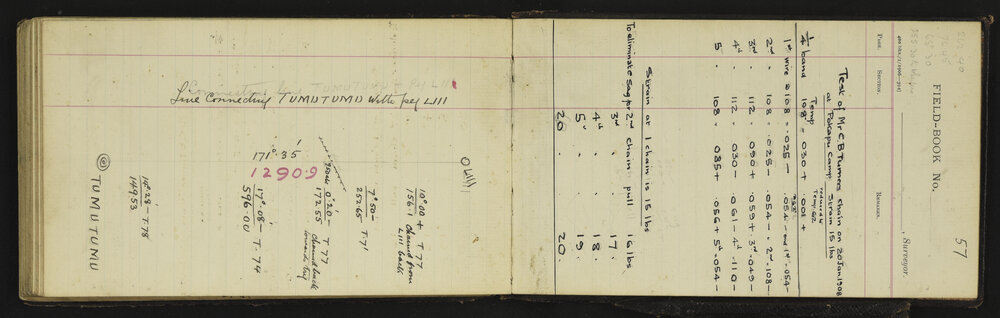 Line Connecting TUMUTUMU with peg LIII
171°.35'
12909
O LIII
10°.00 + T.77
156.1 Chained from LIII back
7°.50 - T.71
252.65
0°.20' - T.77
172.55 Chained back towards peg
17°.08' - T.74
596.00
14°.28' - T.78
149.53
TUMUTUMU
57
FIELD-BOOK No.
, Surveyor.
Page.
Sector.
Remarks.
Test of Mr C B Turners chain on 20 Jan 1908
at Pakapu Camp. Strain 15 lbs
Temp
reduced to Temp. 62
¼ band 108° .030 + .001 +
1st wire @ 108 .025 - .054 - 2nd 1st .054 -
2nd 108 .025 - .054 - 2nd .108 -
3rd 112 .090 + .059 + 3rd .049 -
4th 112 .030 - .061 - 4th .110 -
5 108 .085 + .056 + 5th .054 -
Strain at 1 chain is 15 lbs
To eliminate Sag for 2nd chain pull 16 lbs
3rd . . 17.
4th . . 18.
5th . . 19.
20 . . 20.